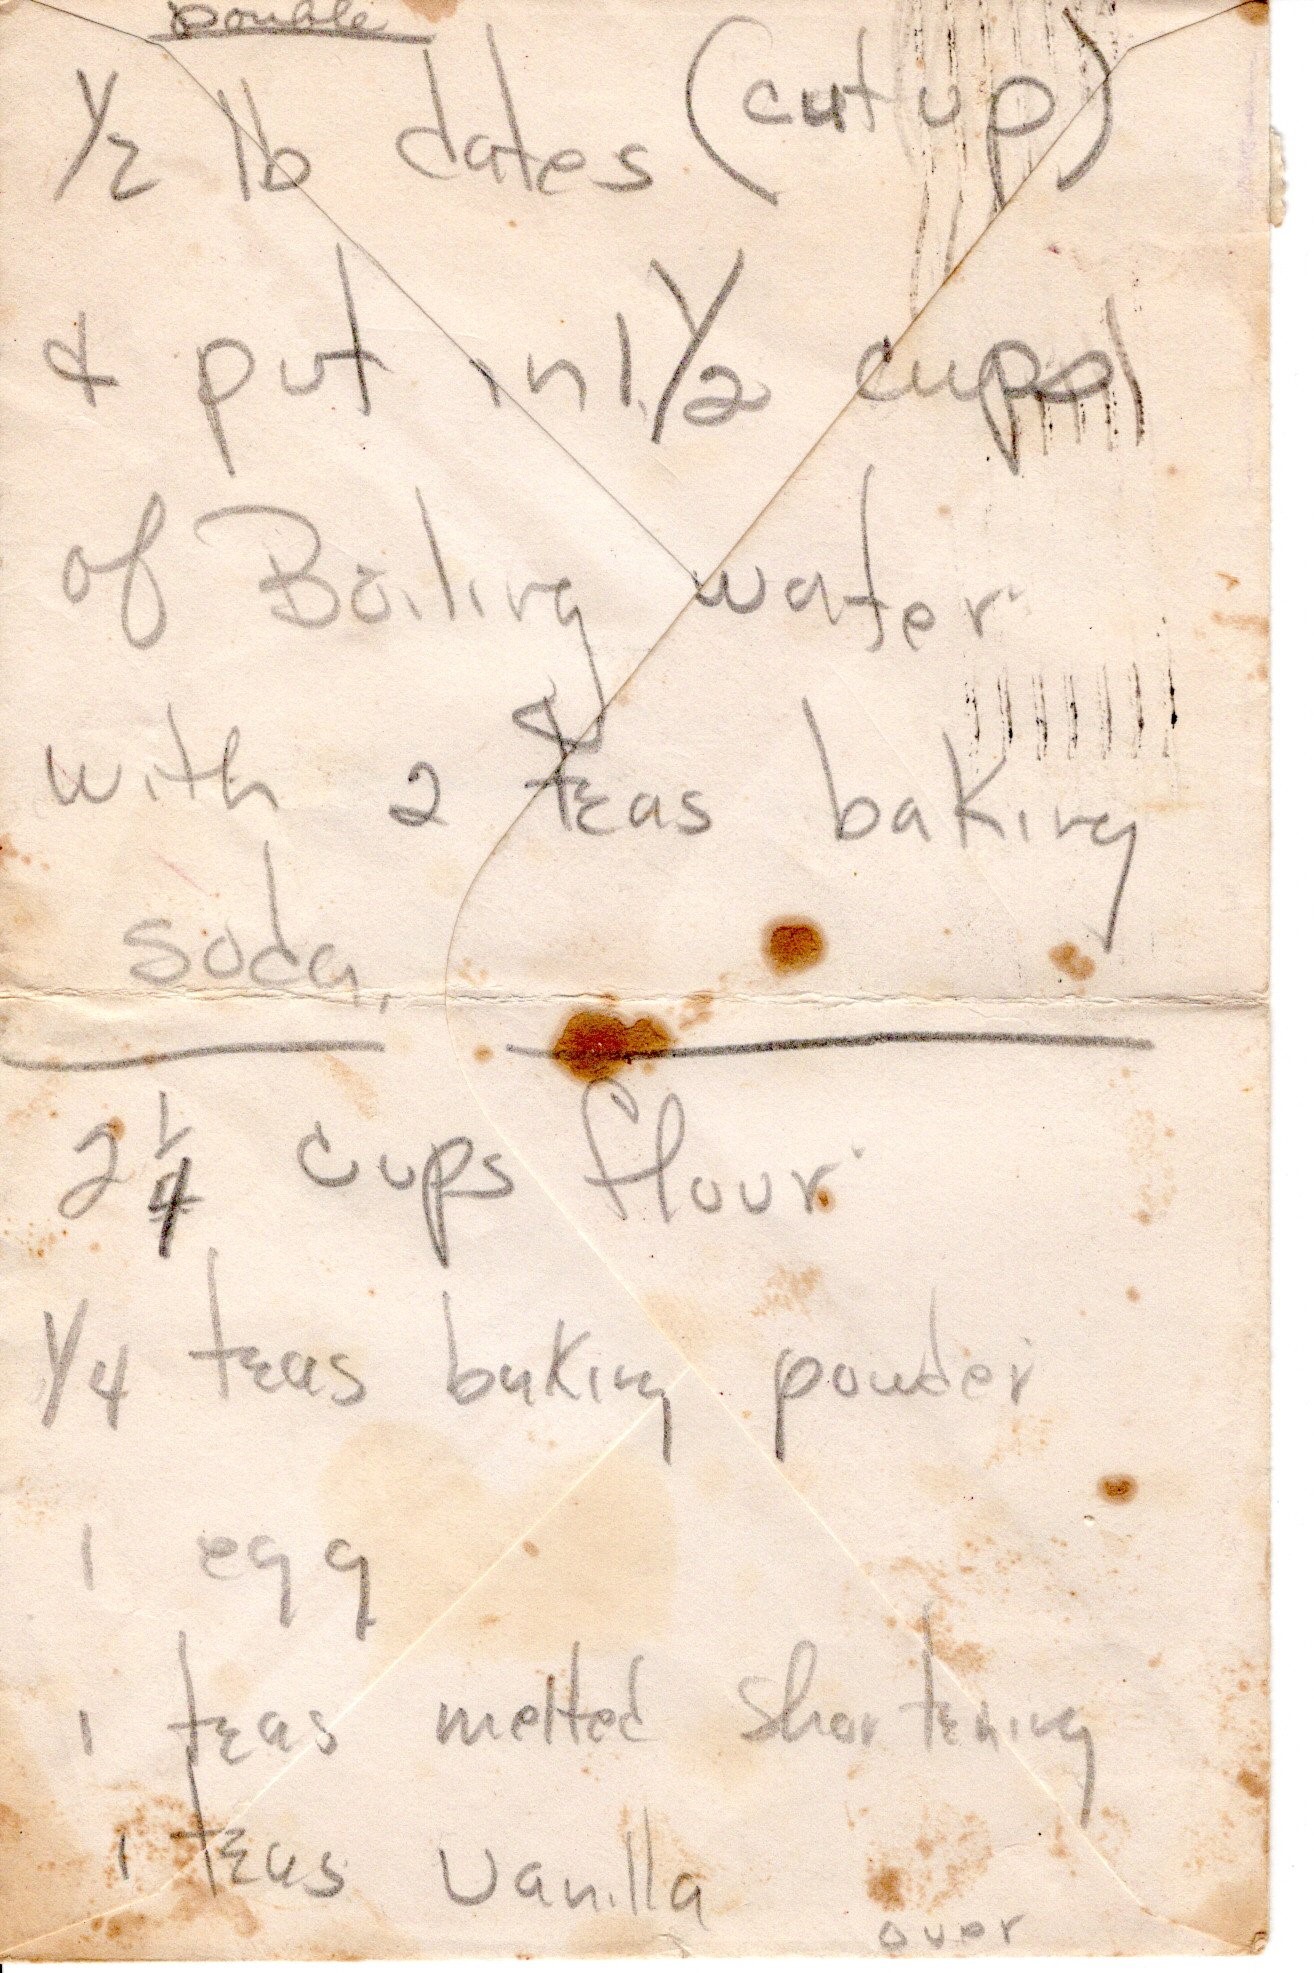 Double
1/2 lb dates (cut up)
& put in 1 1/2 cups
of Boiling water
with 2 teas baking
soda,
2 1/4 cups flour
1/4 teas baking powder
1 egg
1 teas melted shortening
1 teas Vanilla
over